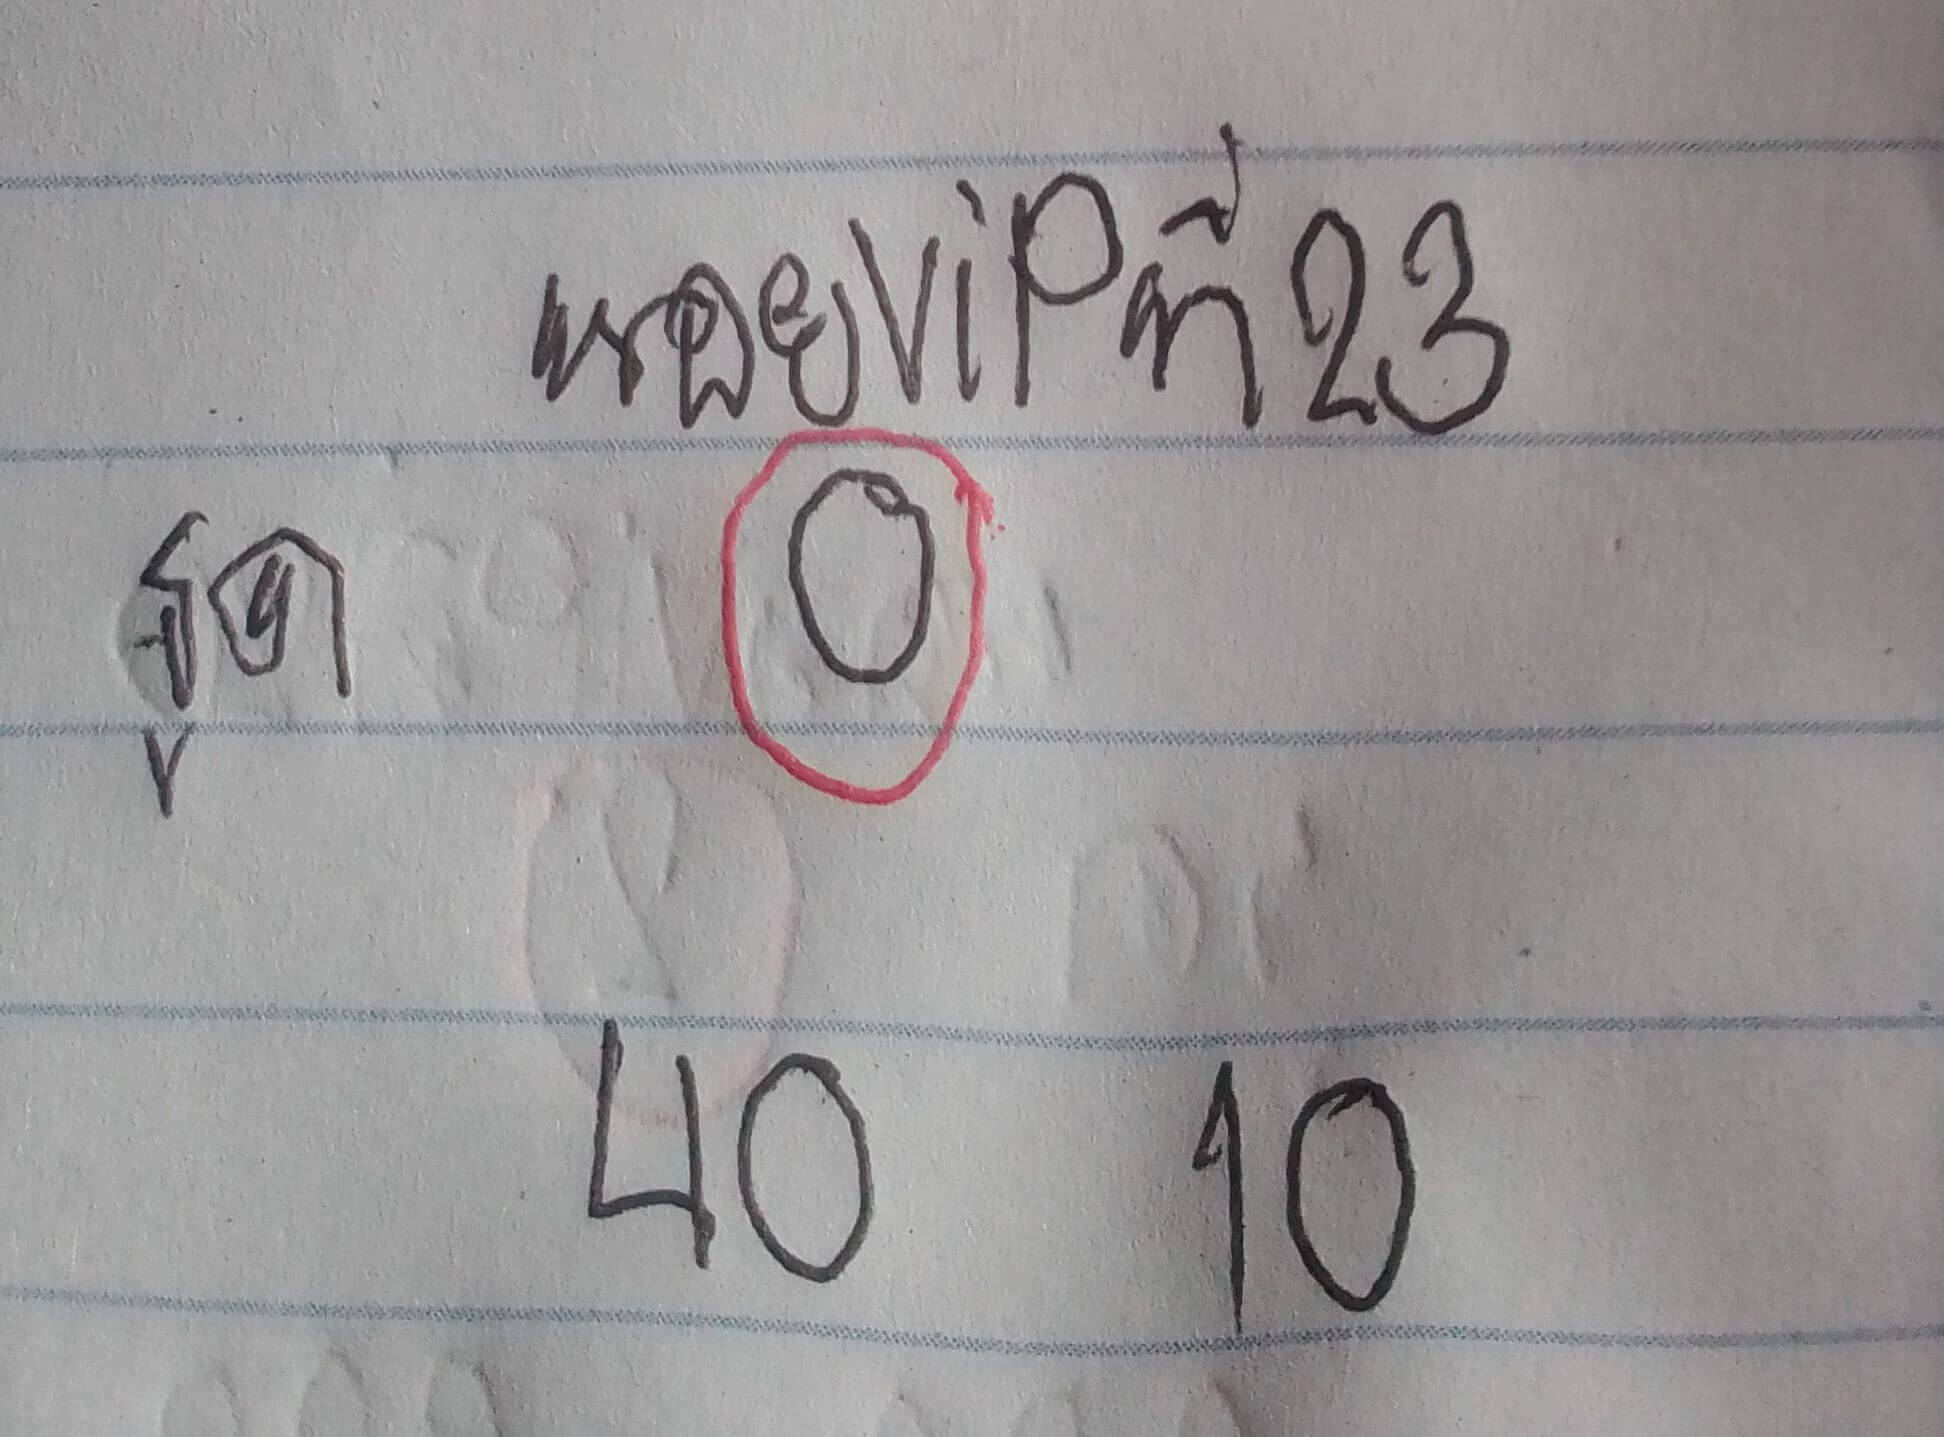 หฮอยViPที่23
รูด 0
40 10